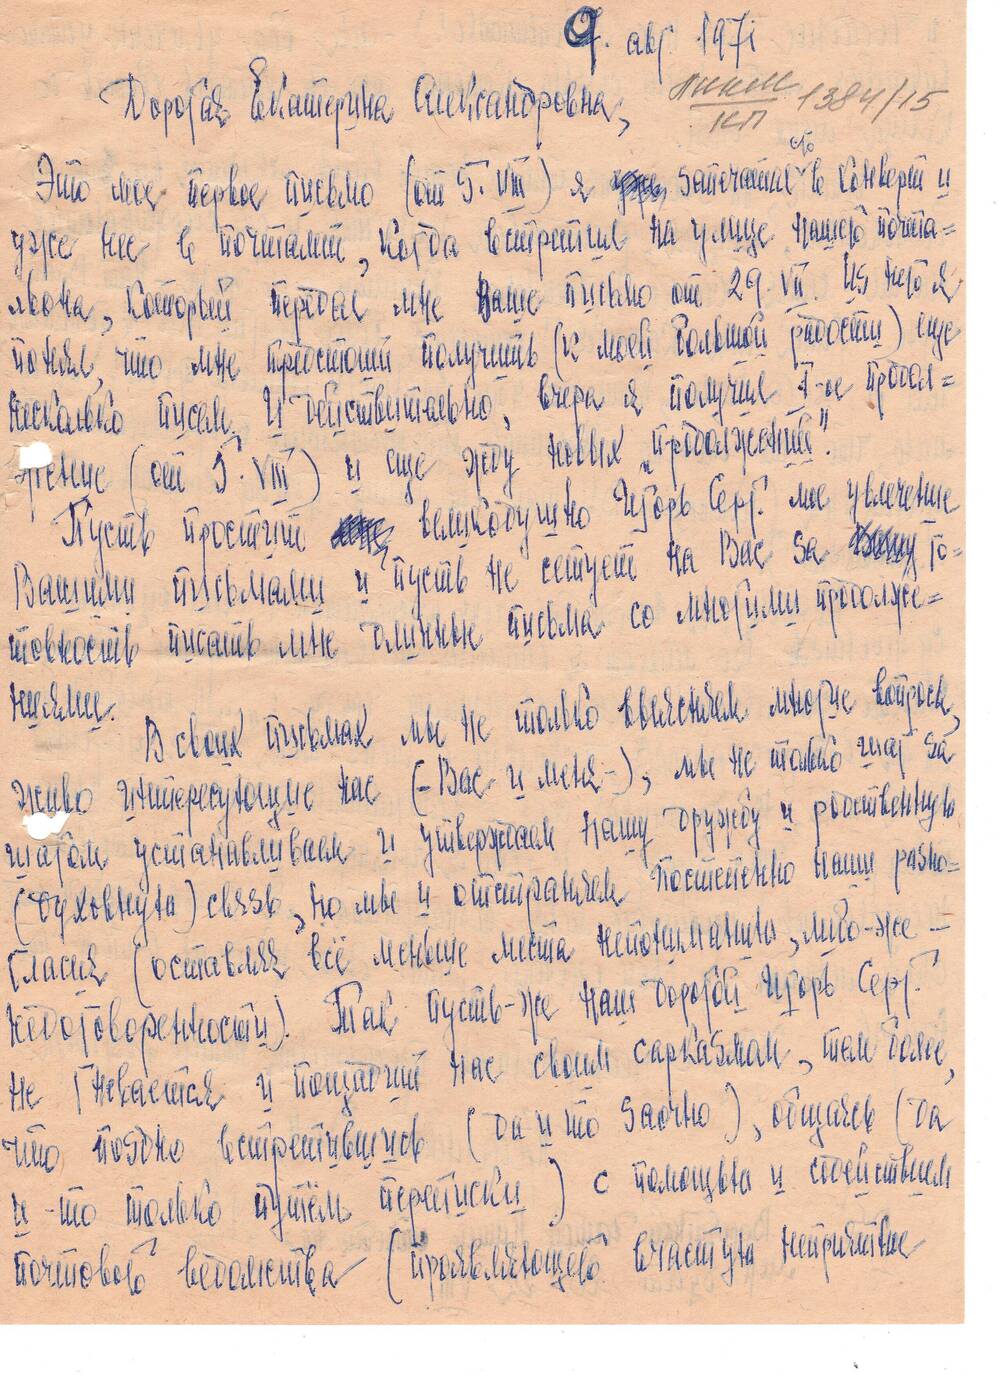 7. авг 1971
Дорогая Екатерина Александровна,
КП 1384/15
Это мое первое письмо (от 5.VIII) я запечатал его в конверт и
уже нес в почтамт, когда встретил на улице нашего почта=
льона, который передал мне Ваше письмо от 29.VII. Из него я
понял, что мне предстоит получить (к моей большой радости) еще
несколько писем. И действительно, вчера я получил 1-ое продол=
жение (от 5.VIII) и еще жду новых „продолжений".
Пусть простит великодушно Игорь Серг. мое увлечение
Вашими письмами и пусть не сетует на Вас за го=
товность писать мне длинные письма со многими продолже=
ниями.
В своих письмах мы не только выясняем многие вопросы,
живо интересующие нас (-Вас и меня-), мы не только шаг за
шагом устанавливаем и утверждаем нашу дружбу и родственную
(духовную) связь, но мы и отстраняем постепенно наши разно=
гласия (оставляя всё меньше места непониманию, либо-же -
недоговоренности). Так пусть-же наш дорогой Игорь Серг.
не гневается и пощадит нас своим сарказмом, тем более,
что поздно встретившись (да и то заочно), общаясь (да
и-то только путём переписки) с помощью и содействием
почтового ведомства (проявляющего зачастую неприятные